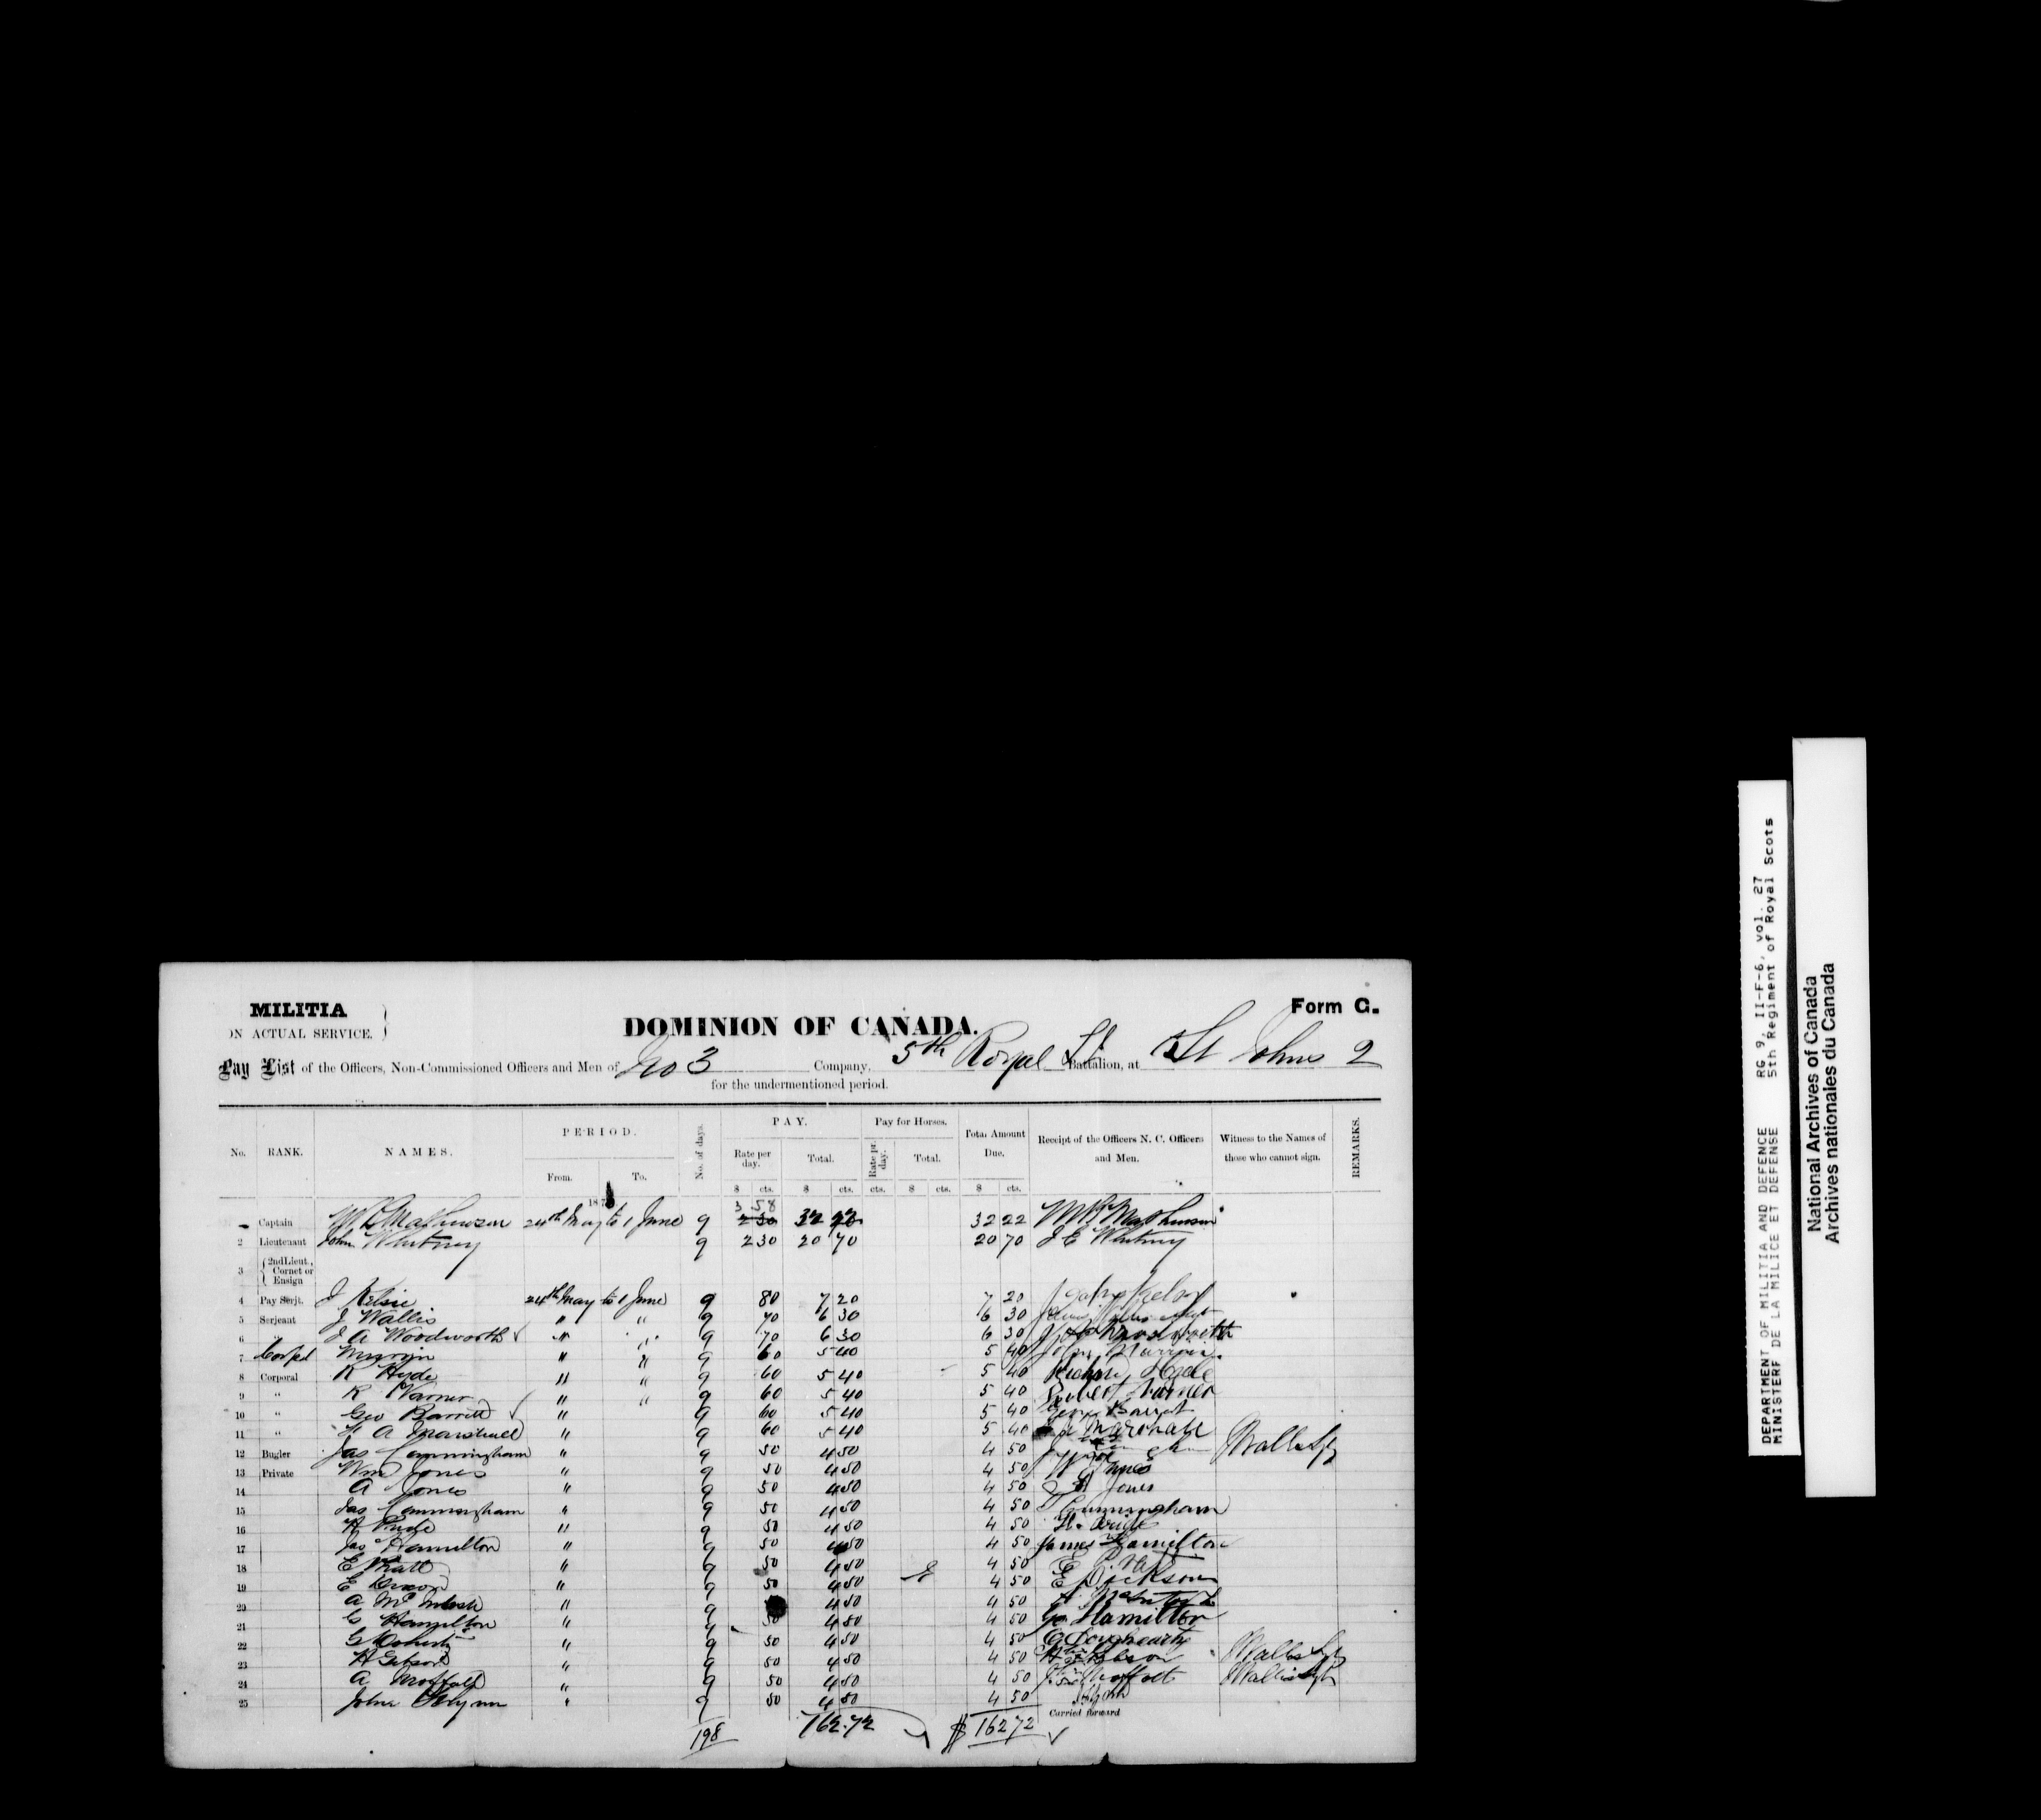 MILITIA
ON ACTUAL SERVICE.
Form G.
DOMINION OF CANADA.
Pay List of the Officers, Non-Commissioned Officers and Men of No 3 Company, 5th Royal Battalion, at St Johns
for the undermentioned period.
No. RANK. NAMES. PERIOD. No. of days. PAY. Pay for Horses. Total Amount Due. Receipt of the Officers N. C. Officers and Men. Witness to the Names of those who cannot sign. REMARKS.
From. To. Rate per day. Total. Rate pr. day. Total.
$ cts. $ cts. cts. $ cts. $ cts.
187
3 58
Captain 24th May to 1 June 9 2 30 32 22 32 22
2 Lieutenant John Whitney 9 2 30 20 70 20 70 J E Whitney
3 2nd Lieut., Cornet or Ensign
4 Pay Serjt. J Kelsie 24th May to 1 June 9 80 7 20 7 20
5 Serjeant J Wallis " " 9 70 6 30 6 30
6 " J A Woodworth " " 9 70 6 30 6 30
7 Corpl " " 9 60 5 40 5 40
8 Corporal R Hyde " " 9 60 5 40 5 40 Richard Hyde
9 " R Warner " " 9 60 5 40 5 40 Robert Warner
10 " Geo Barrett " 9 60 5 40 5 40 George Barrett
11 " A Marshall " 9 60 5 40 5 40 Marshall
12 Bugler Jas Cunningham " 9 50 4 50 4 50 Wallis Sgt
13 Private Wm Jones " 9 50 4 50 4 50 W Jones
14 A Jones " 9 50 4 50 4 50 A Jones
15 Jas Cunningham " 9 50 4 50 4 50 J Cunningham
16 H " 9 50 4 50 4 50 H.
17 Jas Hamilton " 9 50 4 50 4 50 James Hamilton
18 E " 9 50 4 50 4 50 E
19 E " 9 50 4 50 4 50 E Dickson
20 A McIntosh " 9 4 50 4 50 A McIntosh
21 G Hamilton " 9 50 4 50 4 50 Go Hamilton
22 G Doherty " 9 50 4 50 4 50 G Doughearty
23 H Gibson " 9 50 4 50 4 50 H Gibson Wallis Sgt
24 A Moffatt " 9 50 4 50 4 50 Moffatt Wallis Sgt
25 John " 9 50 4 50 4 50
Carried forward
198 162.72 $ 162 72
DEPARTMENT OF MILITIA AND DEFENCE RG 9, II-F-6, vol. 27
MINISTERE DE LA MILICE ET DEFENSE 5th Regiment of Royal Scots
National Archives of Canada
Archives nationales du Canada